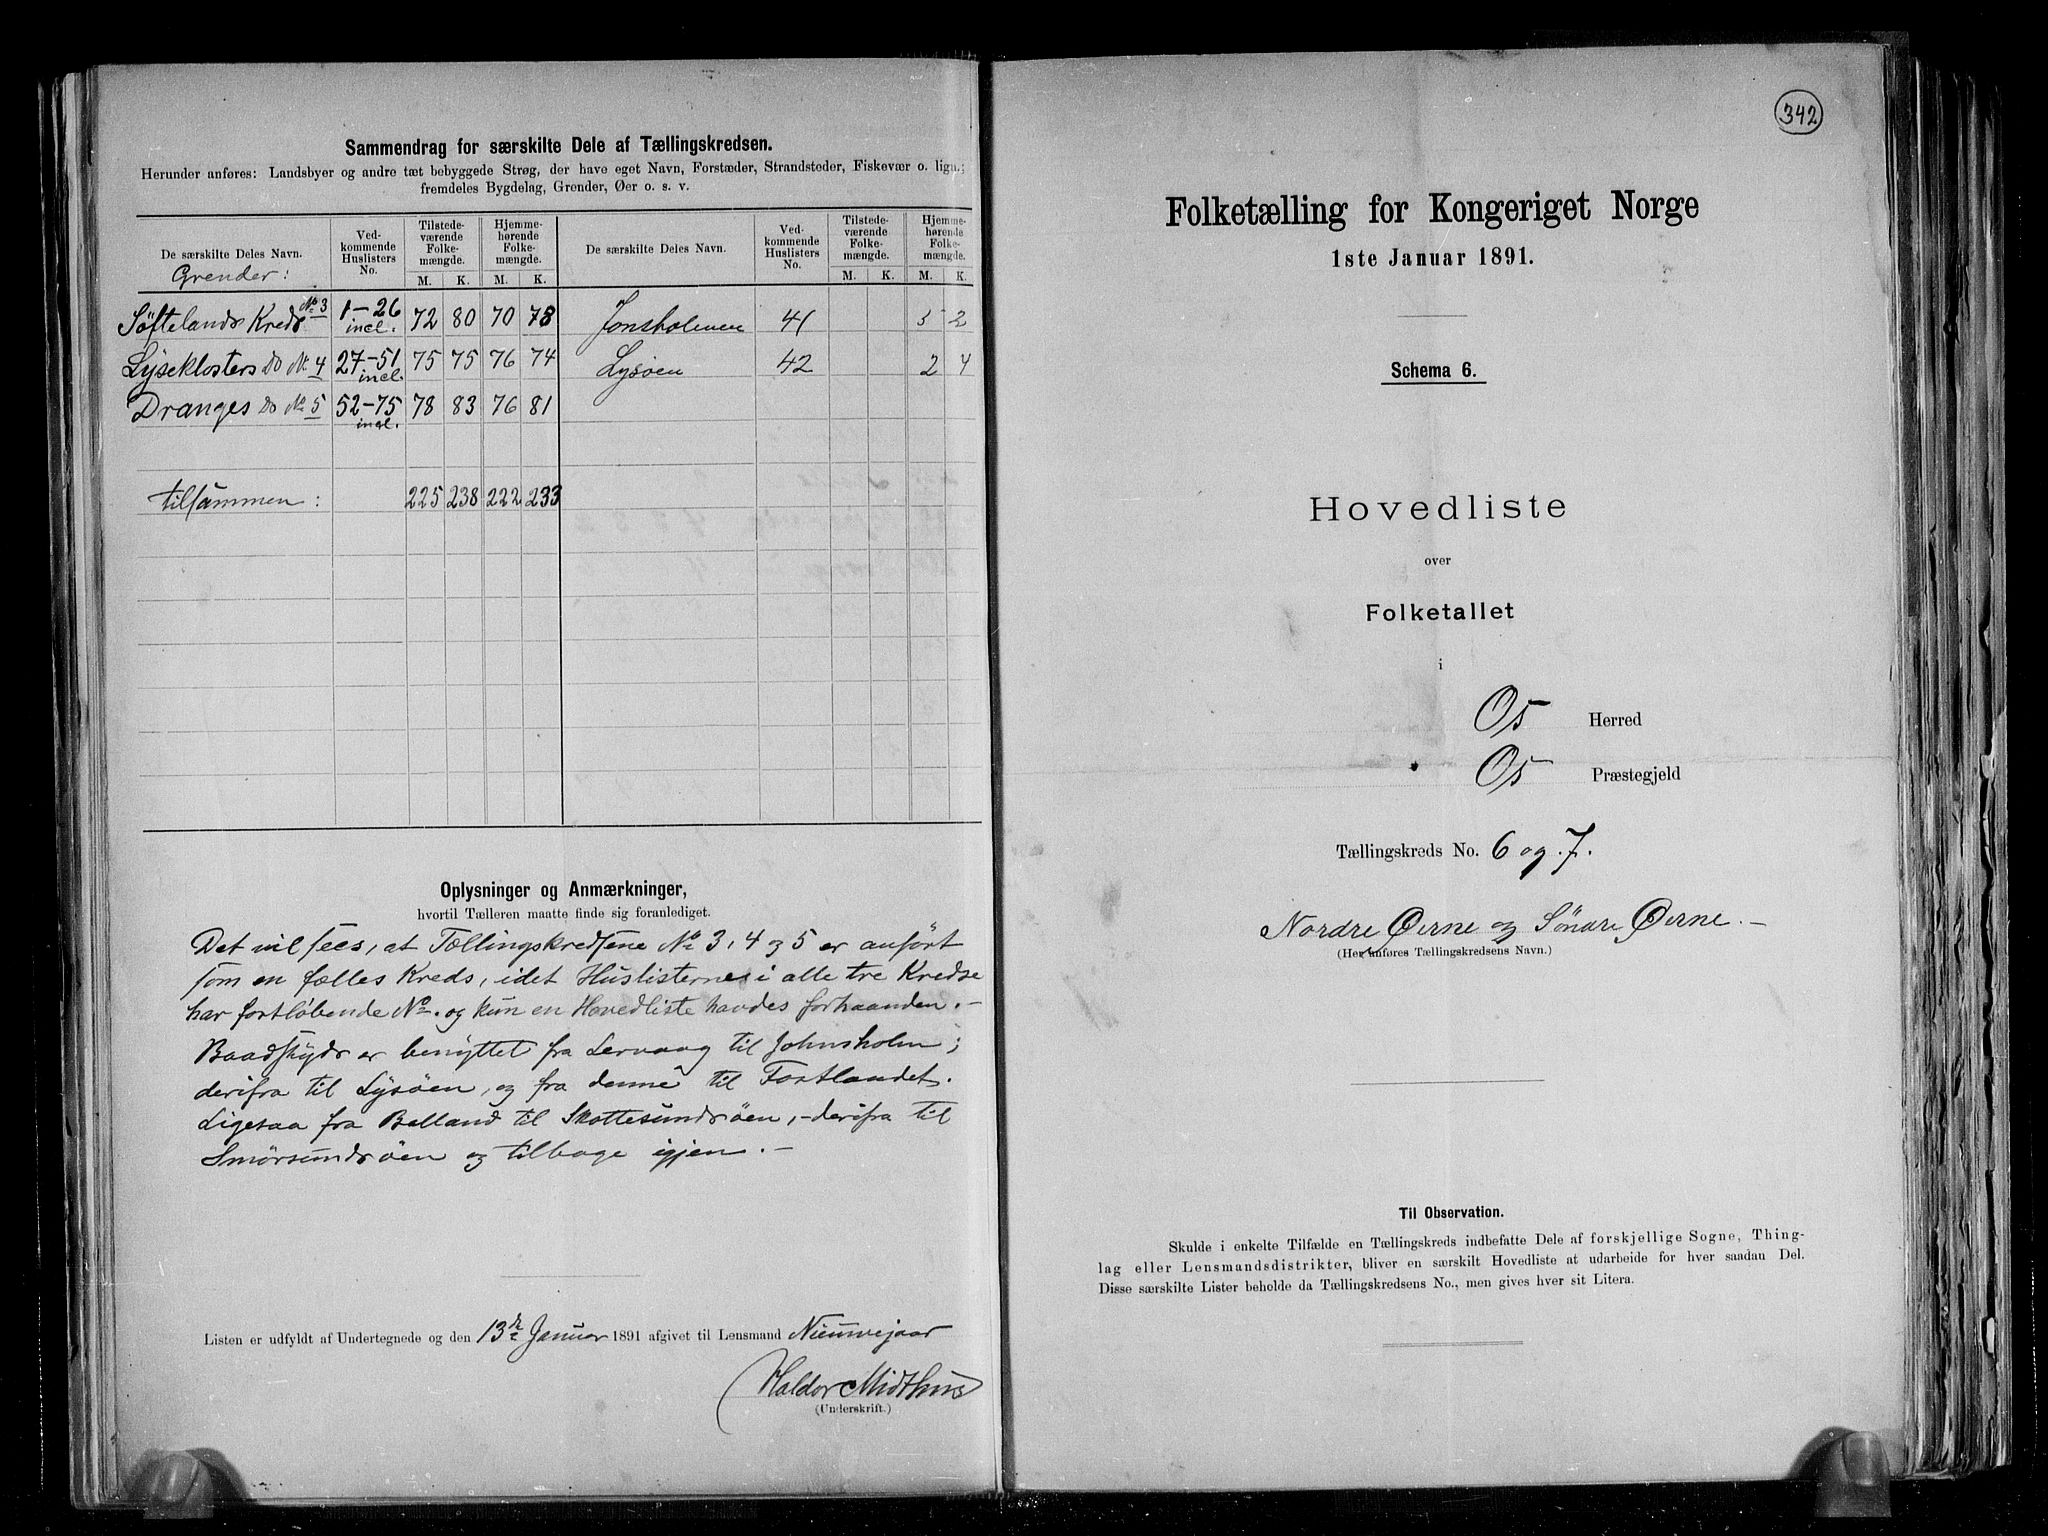 Sammendrag for særskilte Dele af Tællingskredsen.
Herunder anføres: Landsbyer og andre tæt bebyggede Strøg, der have eget Navn, Forstæder, Strandsteder, Fiskevær o. lign.;
fremdeles Bygdelag, Grender, Øer o. s. v.
De særskilte Deles Navn. Ved-kommende Huslisters No. Tilstede-værende Folke-mængde. Hjemme-hørende Folke-mængde. De særskilte Deles Navn. Ved-kommende Huslisters No. Tilstede-værende Folke-mængde. Hjemme-hørende Folke-mængde.
Grender:
M. K. M. K. M. K. M. K.
Søftelands Kreds No 3 1-26 incl. 72 80 70 78 Jonsholmen 41 5 2
Lyseklosters Do No 4 27-51 incl. 75 75 76 74 Lysøen 42 2 4
Dranges Do No 5 52-75 incl. 78 83 76 81
tilsammen: 225 238 222 233
Oplysninger og Anmærkninger,
hvortil Tælleren maatte finde sig foranlediget.
Det vil sees, at Tællingskredsene No 3, 4 og 5 er anført
som en fælles Kreds, idet Huslisterne i alle tre Kredse
har fortløbende No. og kun en Hovedliste havdes forhaanden.-
Baadskyds er benyttet fra Lervaag til Johnsholm;
derifra til Lysøen, og fra denne til Fastlandet.
Ligesaa fra Balland til Skottesundsøen,-derifra til
Smørsundsøen og tilbage igjen.-
Listen er udfyldt af Undertegnede og den 13de Januar 1891 afgivet til Lensmand Nieuwejaar
Haldor Midthus
(Underskrift.)
342
Folketælling for Kongeriget Norge
1ste Januar 1891.
Schema 6.
Hovedliste
over
Folketallet
i
Os Herred
Os Præstegjeld
Tællingskreds No. 6 og 7.
Nordre Øerne og Søndre Øerne.-
(Her anføres Tællingskredsens Navn.)
Til Observation.
Skulde i enkelte Tilfælde en Tællingskreds indbefatte Dele af forskjellige Sogne, Thing-
lag eller Lensmandsdistrikter, bliver en særskilt Hovedliste at udarbeide for hver saadan Del.
Disse særskilte Lister beholde da Tællingskredsens No., men gives hver sit Litera.